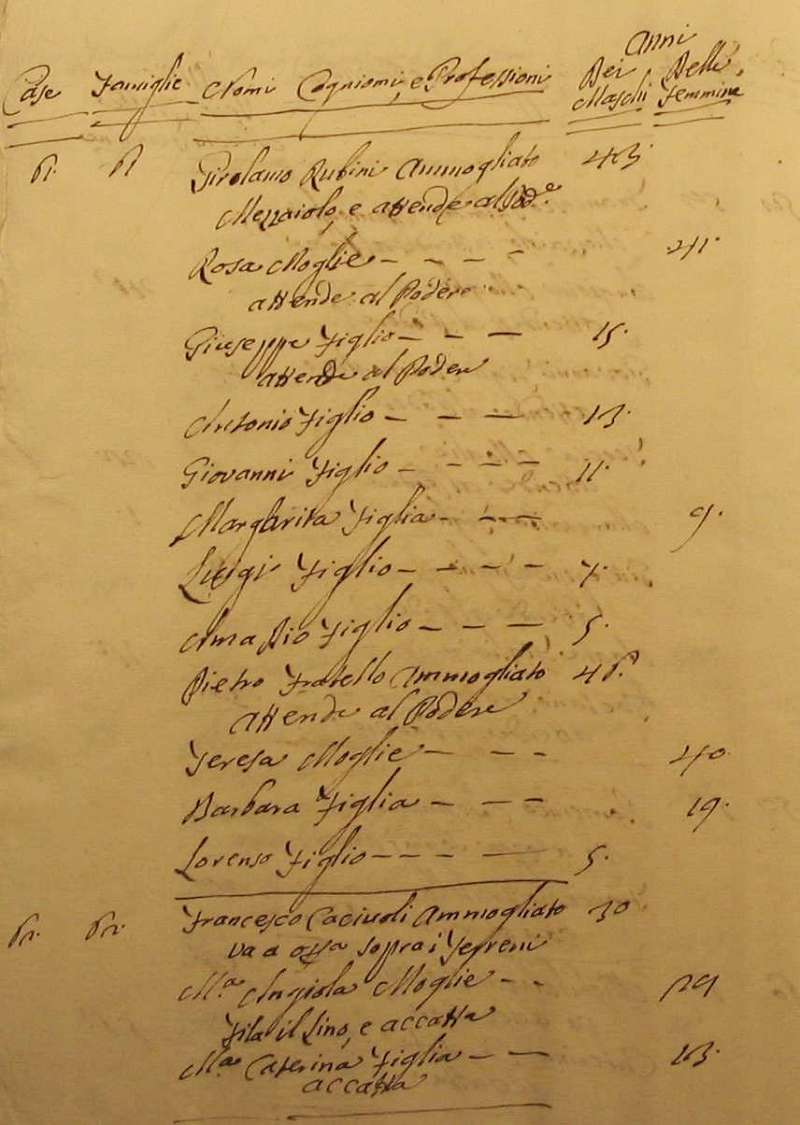 Anni
Case Famiglie Nomi Cogniomi, e Professioni Dei Maschi Delle Femmine
Girolamo Rubini Ammogliato 43.
Mezzaiolo, e attende al Pod.e
Rosa Moglie - - - - 41.
attende al Podere
Giuseppe Figlio - - - 15.
attende al Podere
Antonio Figlio - - - 13.
Giovanni Figlio - - - - 11.
Margarita Figlia - - - 9.
Luigi Figlio - - - - 7.
Figlio - - - 5.
Pietro Fratello Ammogliato
attende al Podere
Teresa Moglie - - - 40.
Barbara Figlia - - - 19.
Lorenso Figlio - - - - 5.
Francesco Ammogliato 30
va a sopra i Terreni
M.a Angiola Moglie - - 29
Fila il Lino, e accatta
M.a Caterina Figlia - - 13.
accatta